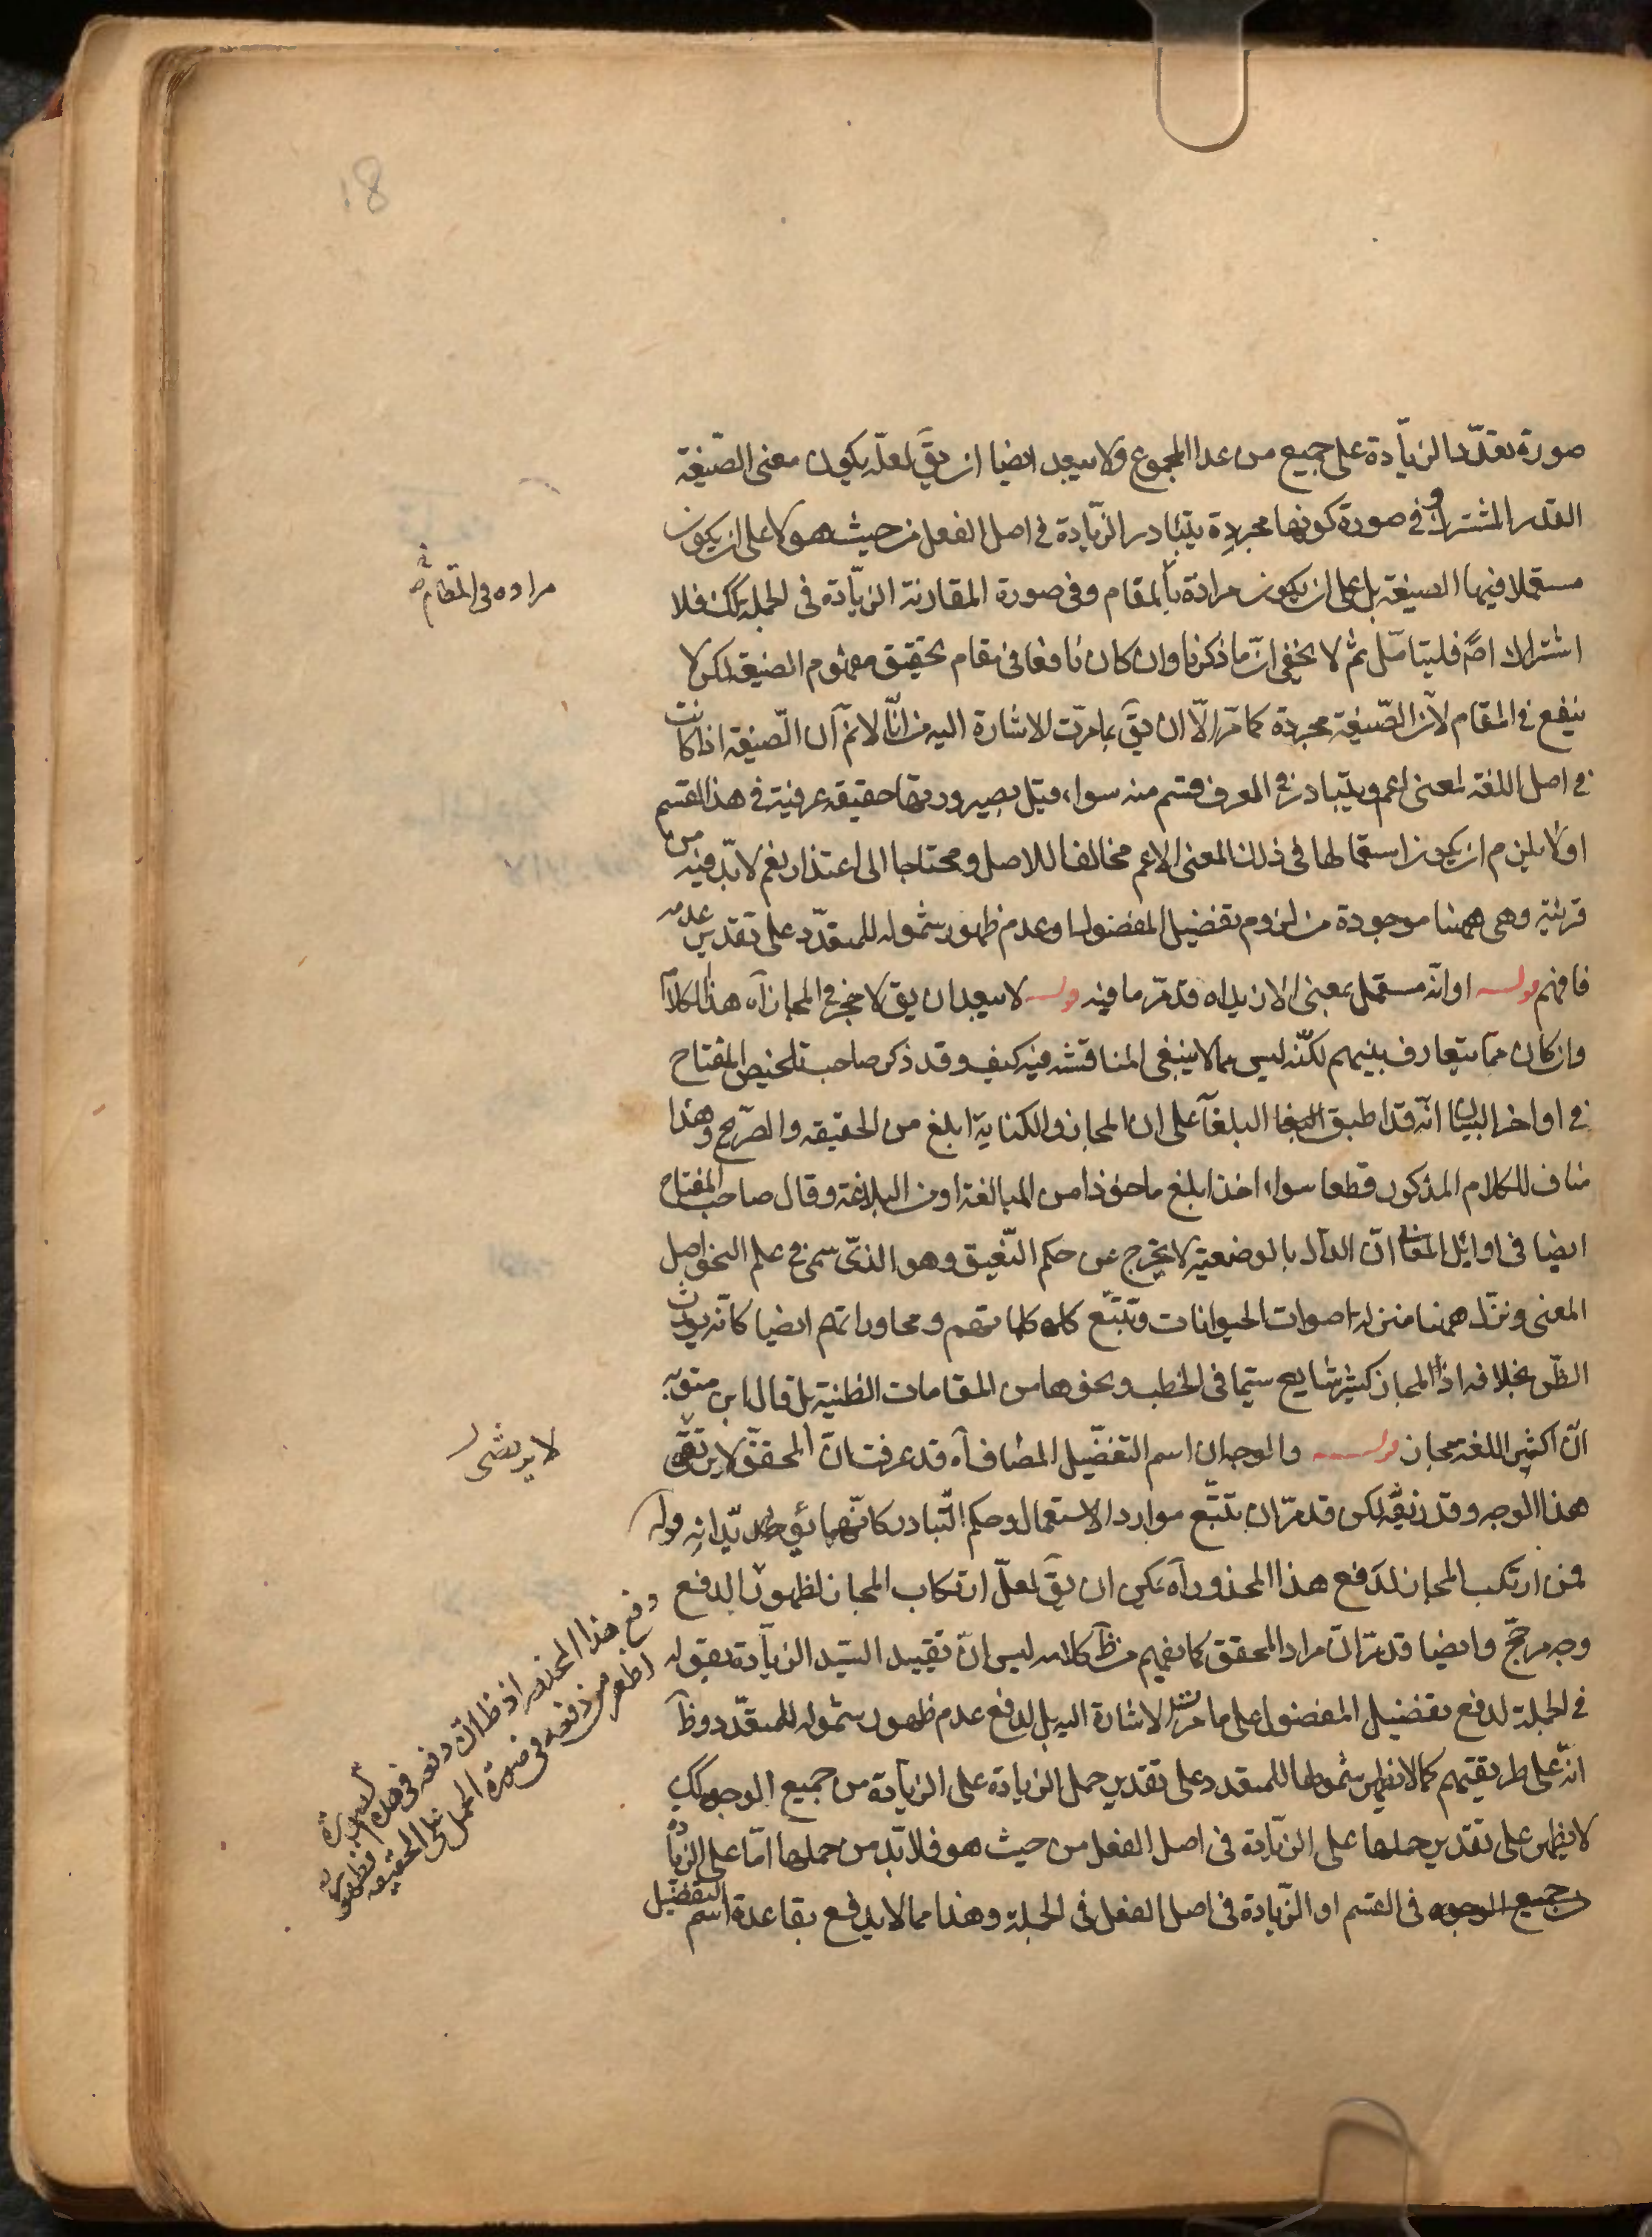 18
صورة تعدّد الزيادة على جميع من عدا المجموع ولا يبعد ايضا ان يقَ لعلّه يكون معنى الصّيغة
القدر المشترك وفى صورة كونها مجردة يتبادر الزّيادة فى اصل الفعل من حيث هو لا على ان يكون
مستعملا فيها الصيغة بل على ان يكون مرادة بالمقام وفى صورة المقارنة الزّيادة فى الجملة كك فلا
اشتراك اصً فليتامّل ثم لا يخفى انّ ما ذكرنا وان كان نافعا فى مقام تحقيق مفهوم الصيغة لكن لا
ينفع فى المقام لانّ الصّيغة مجردة كما مرّ الّا ان يقَ بما مرّت الاشارة اليه من انّا لا نمَ ان الصّيغة اذا كانت
فى اصل اللغة لمعنى اعم ويتبادر فى العرف قسم منه سواء قيل بصيرورتها حقيقة عرفية فى هذا القسم
او لا يلزم ان يكون استعمالها فى ذلك المعنى الاعم مخالفا للاصل ومحتاجا الى اعتذار نعم لا بدّ فيه من
قرينة وهى ههنا موجودة من لزوم تفضيل المفضول او عدم ظهور شموله للمتعدّد على تقدير عدمه
فافهم قوله او انّه مستعمل بمعنى الازيد اه قد مرّ ما فيه قوله لا يبعد ان يق لا حجر فى المجاز اه هذا الكلام
وان كان ممّا يتعارف بينهم لكنّه ليس مما لا ينبغى المناقشة فيه كيف وقد ذكر صاحب تلخيص المفتاح
فى اواخر البيان انّه قد اطبق البلغآ على ان المجاز والكناية ابلغ من الحقيقة والصّريح وهذا
مناف للكلام المذكور قطعا سواء اخذ ابلغ ماخوذا من المبالغة او من البلاغة وقال صاحب المفتاح
ايضا فى اوائل المعانى انّ الدال بالوضعية لا يخرج عن حكم النّعيق وهو الذى سمى فى علم النحو اصل
المعنى ونزّل ههنا منزلة اصوات الحيوانات وتتبّع كلماتهم ومحاوراتهم ايضا كانّه يورث
الظّن بخلافه اذ المجاز كثير شايع سيّما فى الخطب ونحوها من المقامات الظنية بل قال ابن متويه
انّ اكثر اللغة مجاز قوله والوجه ان اسم التفضيل المضاف اه قد عرفت انّ المحقق لا يرتقى
هذا الوجه وقد زيّفه لكن قد مرّ ان تتبّع موارد الاستعمال وحكم التّبادر كانّهما يؤيدانه قوله
فمن ارتكب المجاز لدفع هذا المحذور اه يمكن ان يقَ لعلّ ارتكاب المجاز لظهور الدفع
وجه مرجّح وايضا قد مرّ انّ مراد المحقق كما يفهم من ظَ كلامه ليس انّ تقييد السّيد الزيادة بقوله
فى الجملة لدفع تفضيل المفضول على ما مرّت الاشارة اليه بل لدفع عدم ظهور شموله للمتعدّد وظَ
انّه على طريقتهم كما لا يظهر شمولها للمتعدد على تقدير حمل الزيادة على الزيادة من جميع الوجوه كك
لا يظهر على تقدير حملها على الزّيادة فى اصل الفعل من حيث هو فلا بدّ من حملها امّا على الزيادة
من جميع الوجوه فى القسم او الزّيادة فى اصل الفعل فى الجملة وهذا مما لا يدفع بقاعدة اسم التفضيل
مراده فى المقام
لا يرتضى
دفع هذا المحذور اذ ظ انّ دفعه فى هذه
اظهر من دفعه فى صورة الحمل على الحقيقة